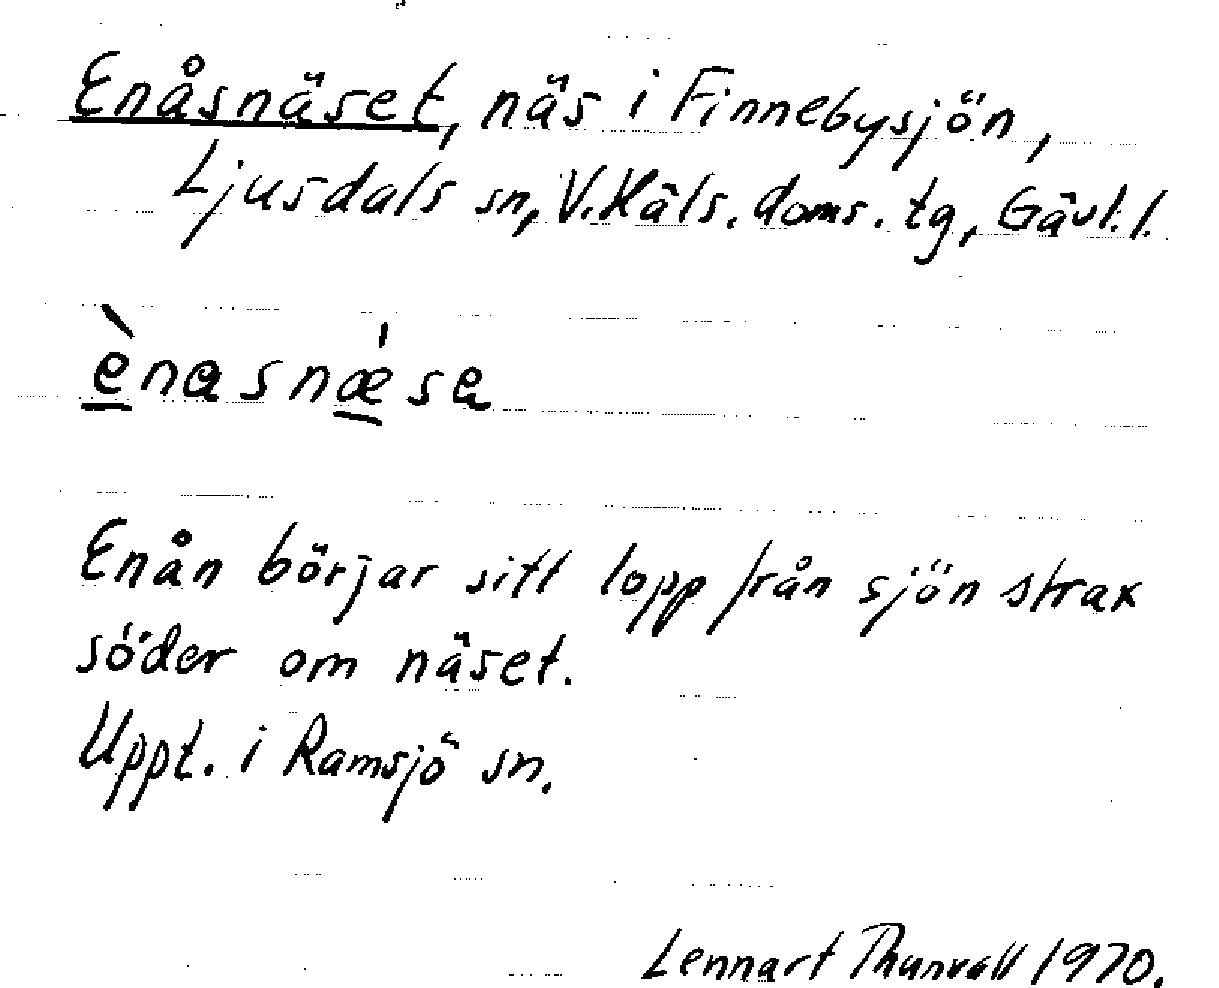 Enåsnäset, näs i Finnebysjön,
Ljusdals sn, V.Häls. doms. tg, Gävl.l.
ènasnǽsa
Enån börjar sitt lopp från sjön strax
söder om näset.
Uppt. i Ramsjö sn.
Lennart Thunvall 1970.